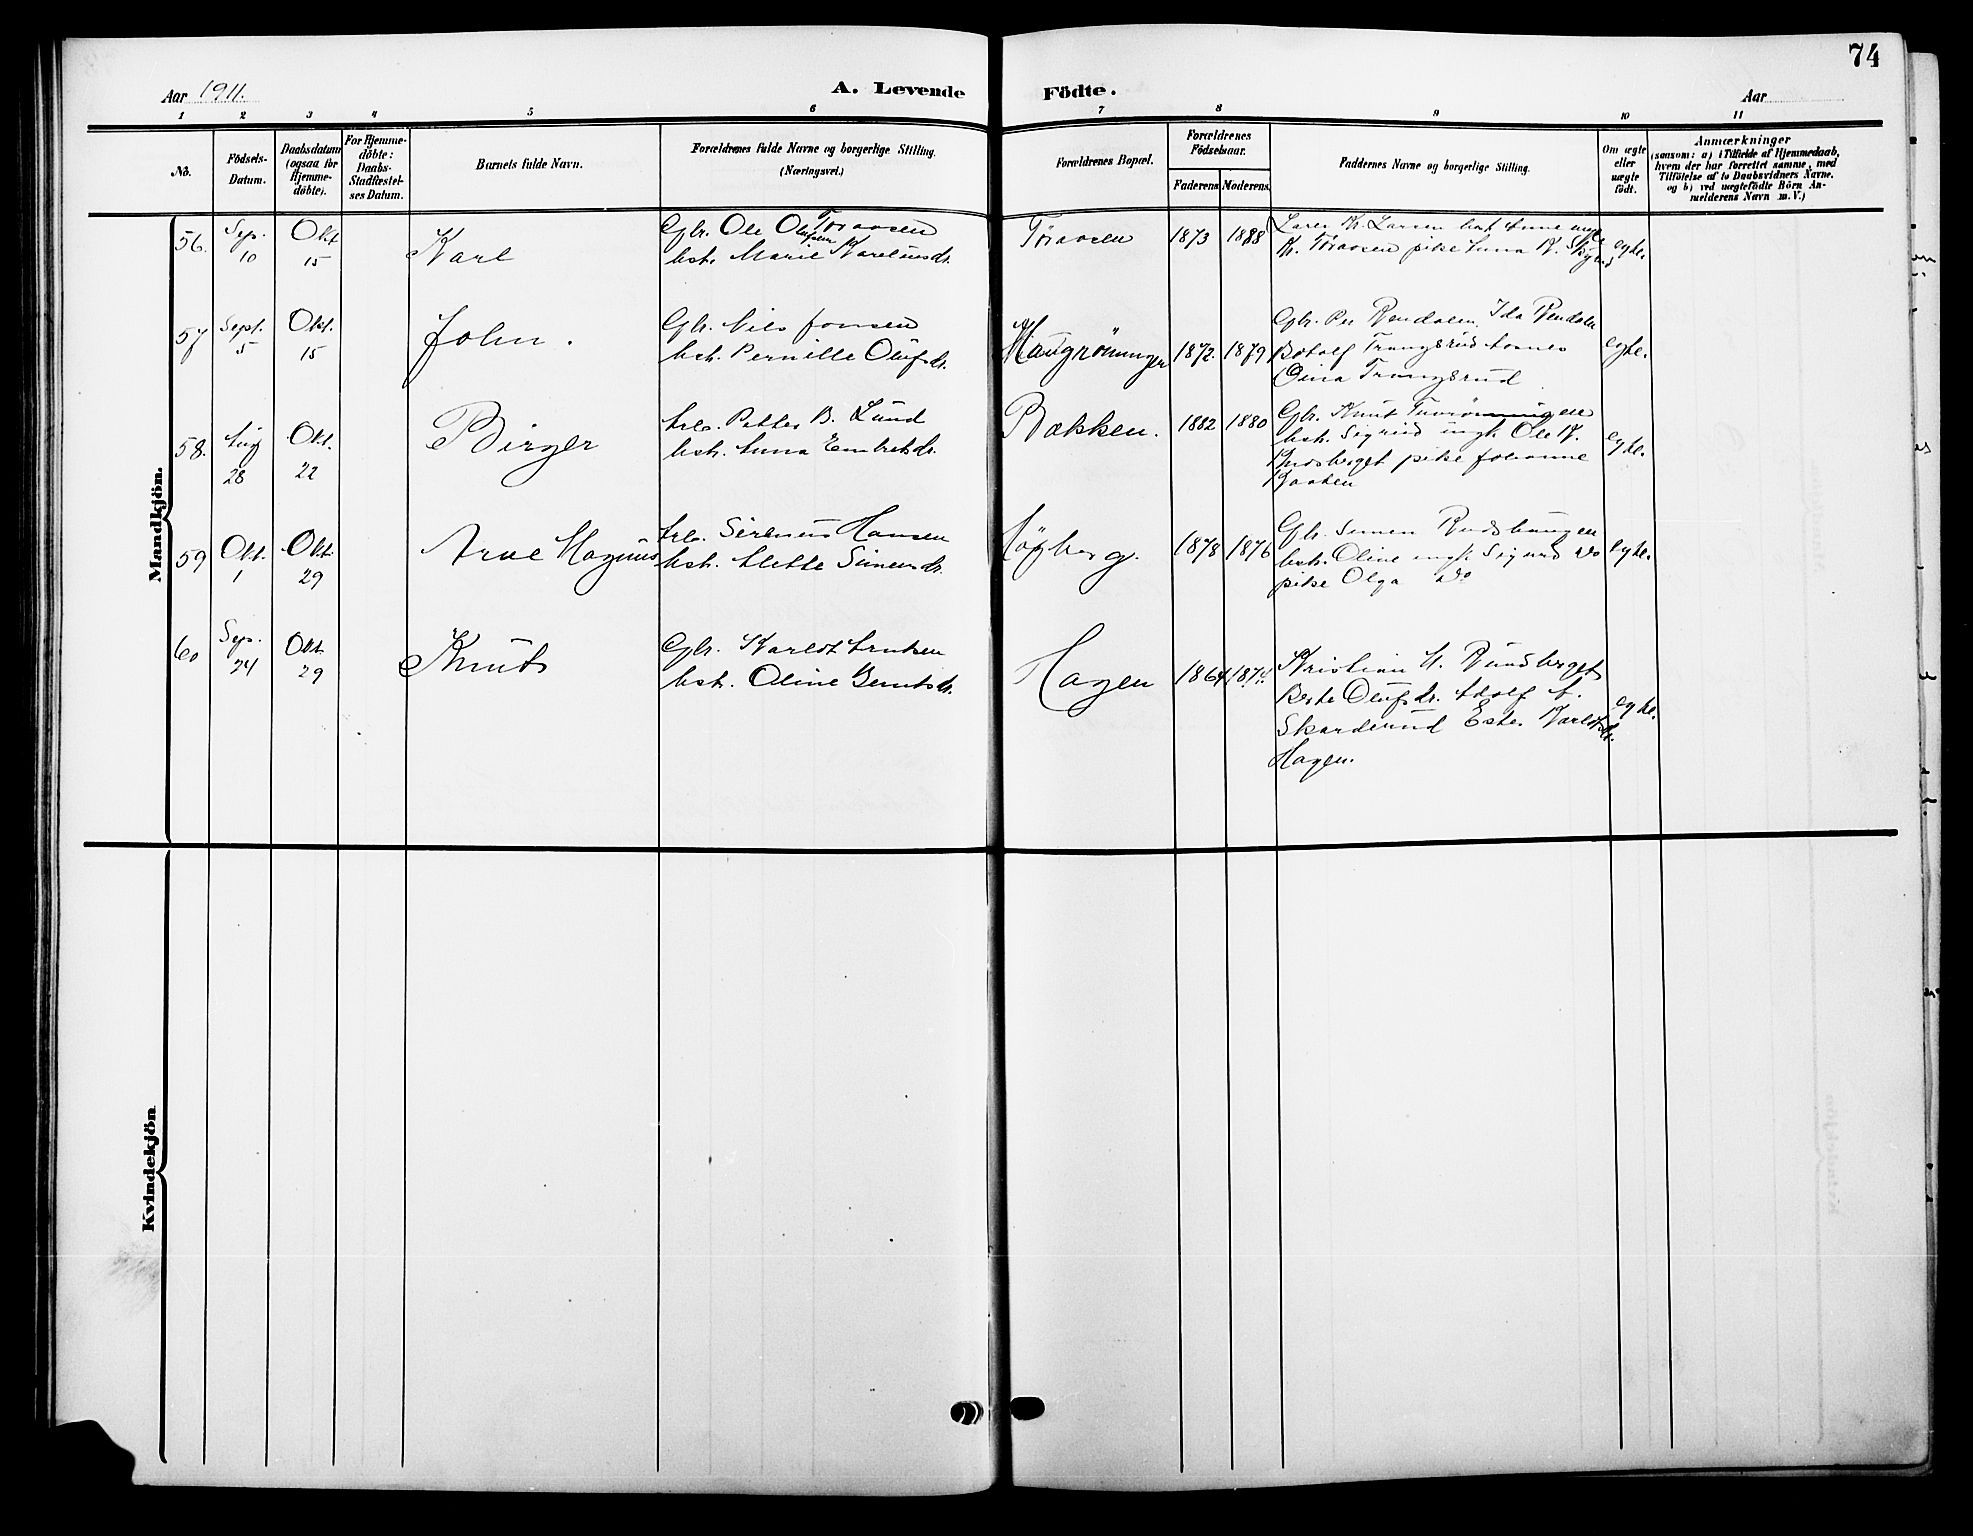 74
Aar 1911.
A. Levende Födte.
Aar
1 2 3 4 5 6 7 8 9 10 11
No.
Födsels-Datum.
Daabsdatum (ogsaa for Hjemme-döbte).
For Hjemme-döbte: Daabs-Stadfæstel-ses Datum.
Barnets fulde Navn.
Forældrenes fulde Navne og borgerlige Stilling.
(Næringsvei.)
Forældrenes Bopæl.
Forældrenes Födselsaar.
Faderens Moderens.
Faddernes Navne og borgerlige Stilling.
Om ægte eller uægte födt.
Anmærkninger
(saasom: a) i Tilfælde af Hjemmedaab,
hvem der har forrettet samme, med
Tilföielse af to Daabsvidners Navne.
og b) ved uægtefödte Börn An-
melderens Navn m. V.)
Mandkjön.
56. Sep. 10 Okt 15 Karl
Gbr. Ole Olufsen Töraasen
hst. Marie Kareliusdr.
Töraasen 1873 1888
Lars K. Larsen hst Anne
K. Töraasen pike Anna K.
egte.
57 Sept. 5 Okt. 15 John.
Gbr. Nils Jonsen
hst. Pernille Olufsdr.
Haugröninger 1872. 1879
Gbr. Per Rendalen, Ida Rendalen
Botolf Trangsrud
Oina Trangsrud
egte.
58. Aug 28 Okt. 22 Birger
Arb. Petter B. Lund
hst. Anna Embretsdr.
Bakken. 1882 1880
Gbr. Knut
hst. Sigrid ungk. Ole K.
pike Johanne
egte.
59 Okt. 1 Okt. 29 Arne Magnus
Arb. Sirenus Hansen
hst. Mette Simensdr.
Högberg. 1878 1876
Gbr. Simen Rudshaugen
hst. Oline ungk. Sigurd do
pike Olga do
egte.
60 Sep. 24 Okt. 29 Knut
Gbr. Karldt Arntsen
hst. Oline Berntsdr.
Hagen 1864 1874.
Kristian H. Rundberget
Berte Olufsdr. Adolf A.
Skarderud Ester Karldtsdr.
Hagen.
egte.
Kvindekjön